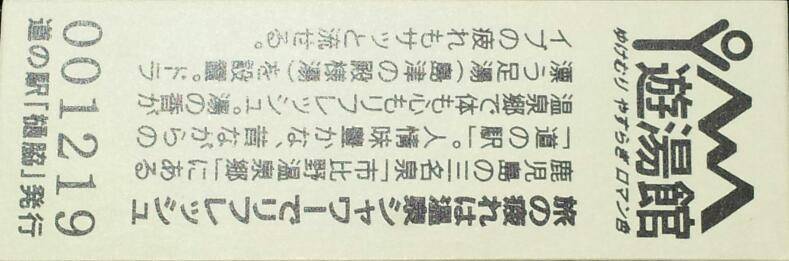 ゆけむり やすらぎ
遊湯館
旅の疲れは温泉シャワーでリフレッシュ
鹿児島の三名泉「市比野温泉郷」にある
「道の駅」。人情味豊かな、昔ながらの
温泉郷で体も心もリフレッシュ。湯の香が
漂う足湯(島津の殿様湯)を設置。ドラ
イブの疲れもサッと流せる。
001219
道の駅「樋脇」発行